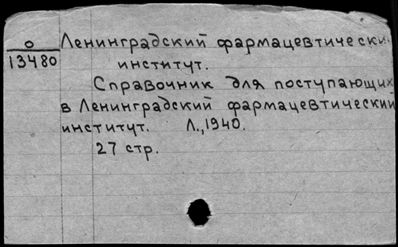 О
13480
Ленинградский фармацевтически
институт.
Справочник для поступающих
в Ленинградский фармацевтический
институт. Л., 1940.
27 стр.